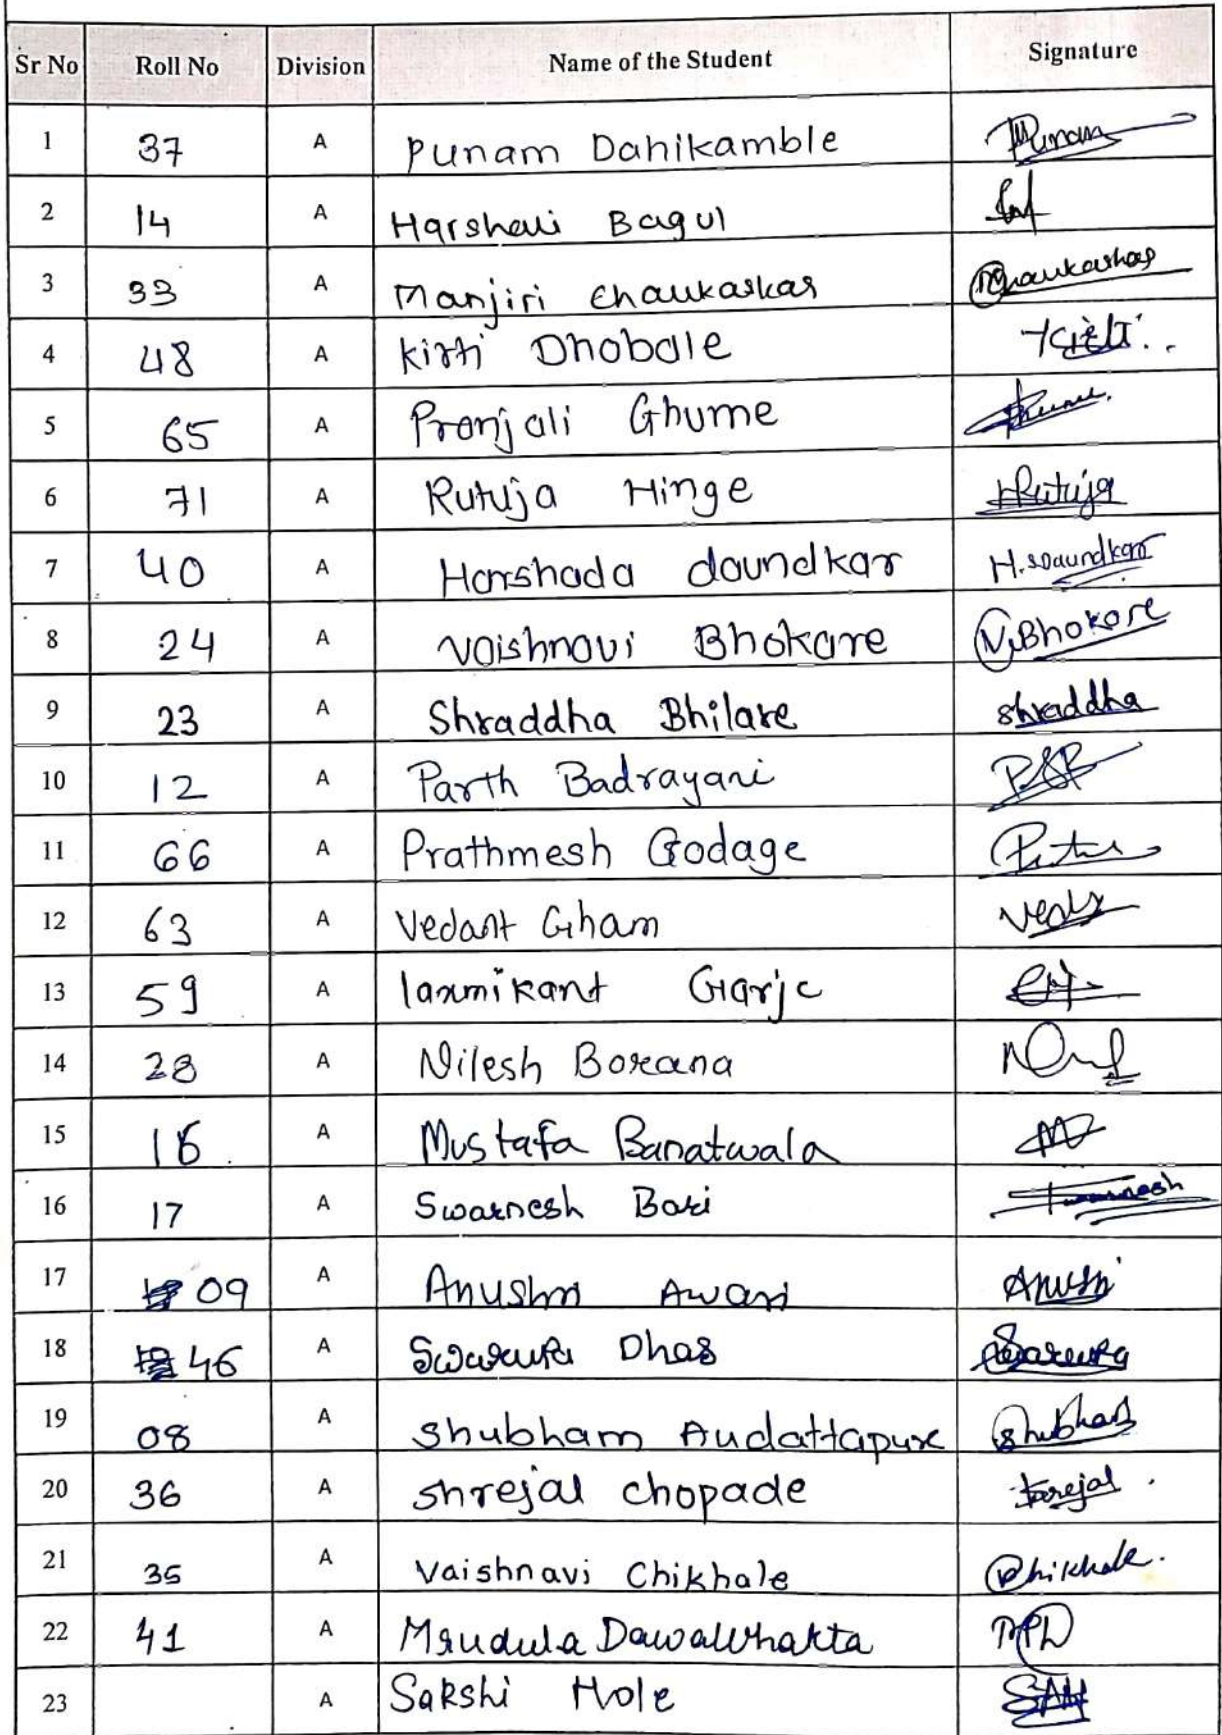 Sr No Roll No Division Name of the Student Signature
1 37 A Punam Dahikamble Punam
2 14 A Harshali Bagul
3 33 A Manjiri Chaukaskar
4 48 A Kirti Dhobale Kirti
5 65 A Pranjali Ghume
6 71 A Rutuja Hinge Rutuja
7 40 A Harshada daundkar H.Daundkar
8 24 A Vaishnavi Bhokare V.Bhokare
9 23 A Shraddha Bhilare shraddha
10 12 A Parth Badrayani
11 66 A Prathmesh Godage
12 63 A Vedant Gham
13 59 A laxmikant Garje
14 28 A Nilesh Borana
15 16 A Mustafa Banatwala
16 17 A Swarnesh Bari
17 09 A Anushri Awari
18 46 A Swarupa Dhas
19 08 A Shubham Audattapure Shubham
20 36 A Shrejal chopade
21 35 A Vaishnavi Chikhale Chikhale.
22 41 A Mrudula Dawalbhakta MPD
23 A Sakshi Hole